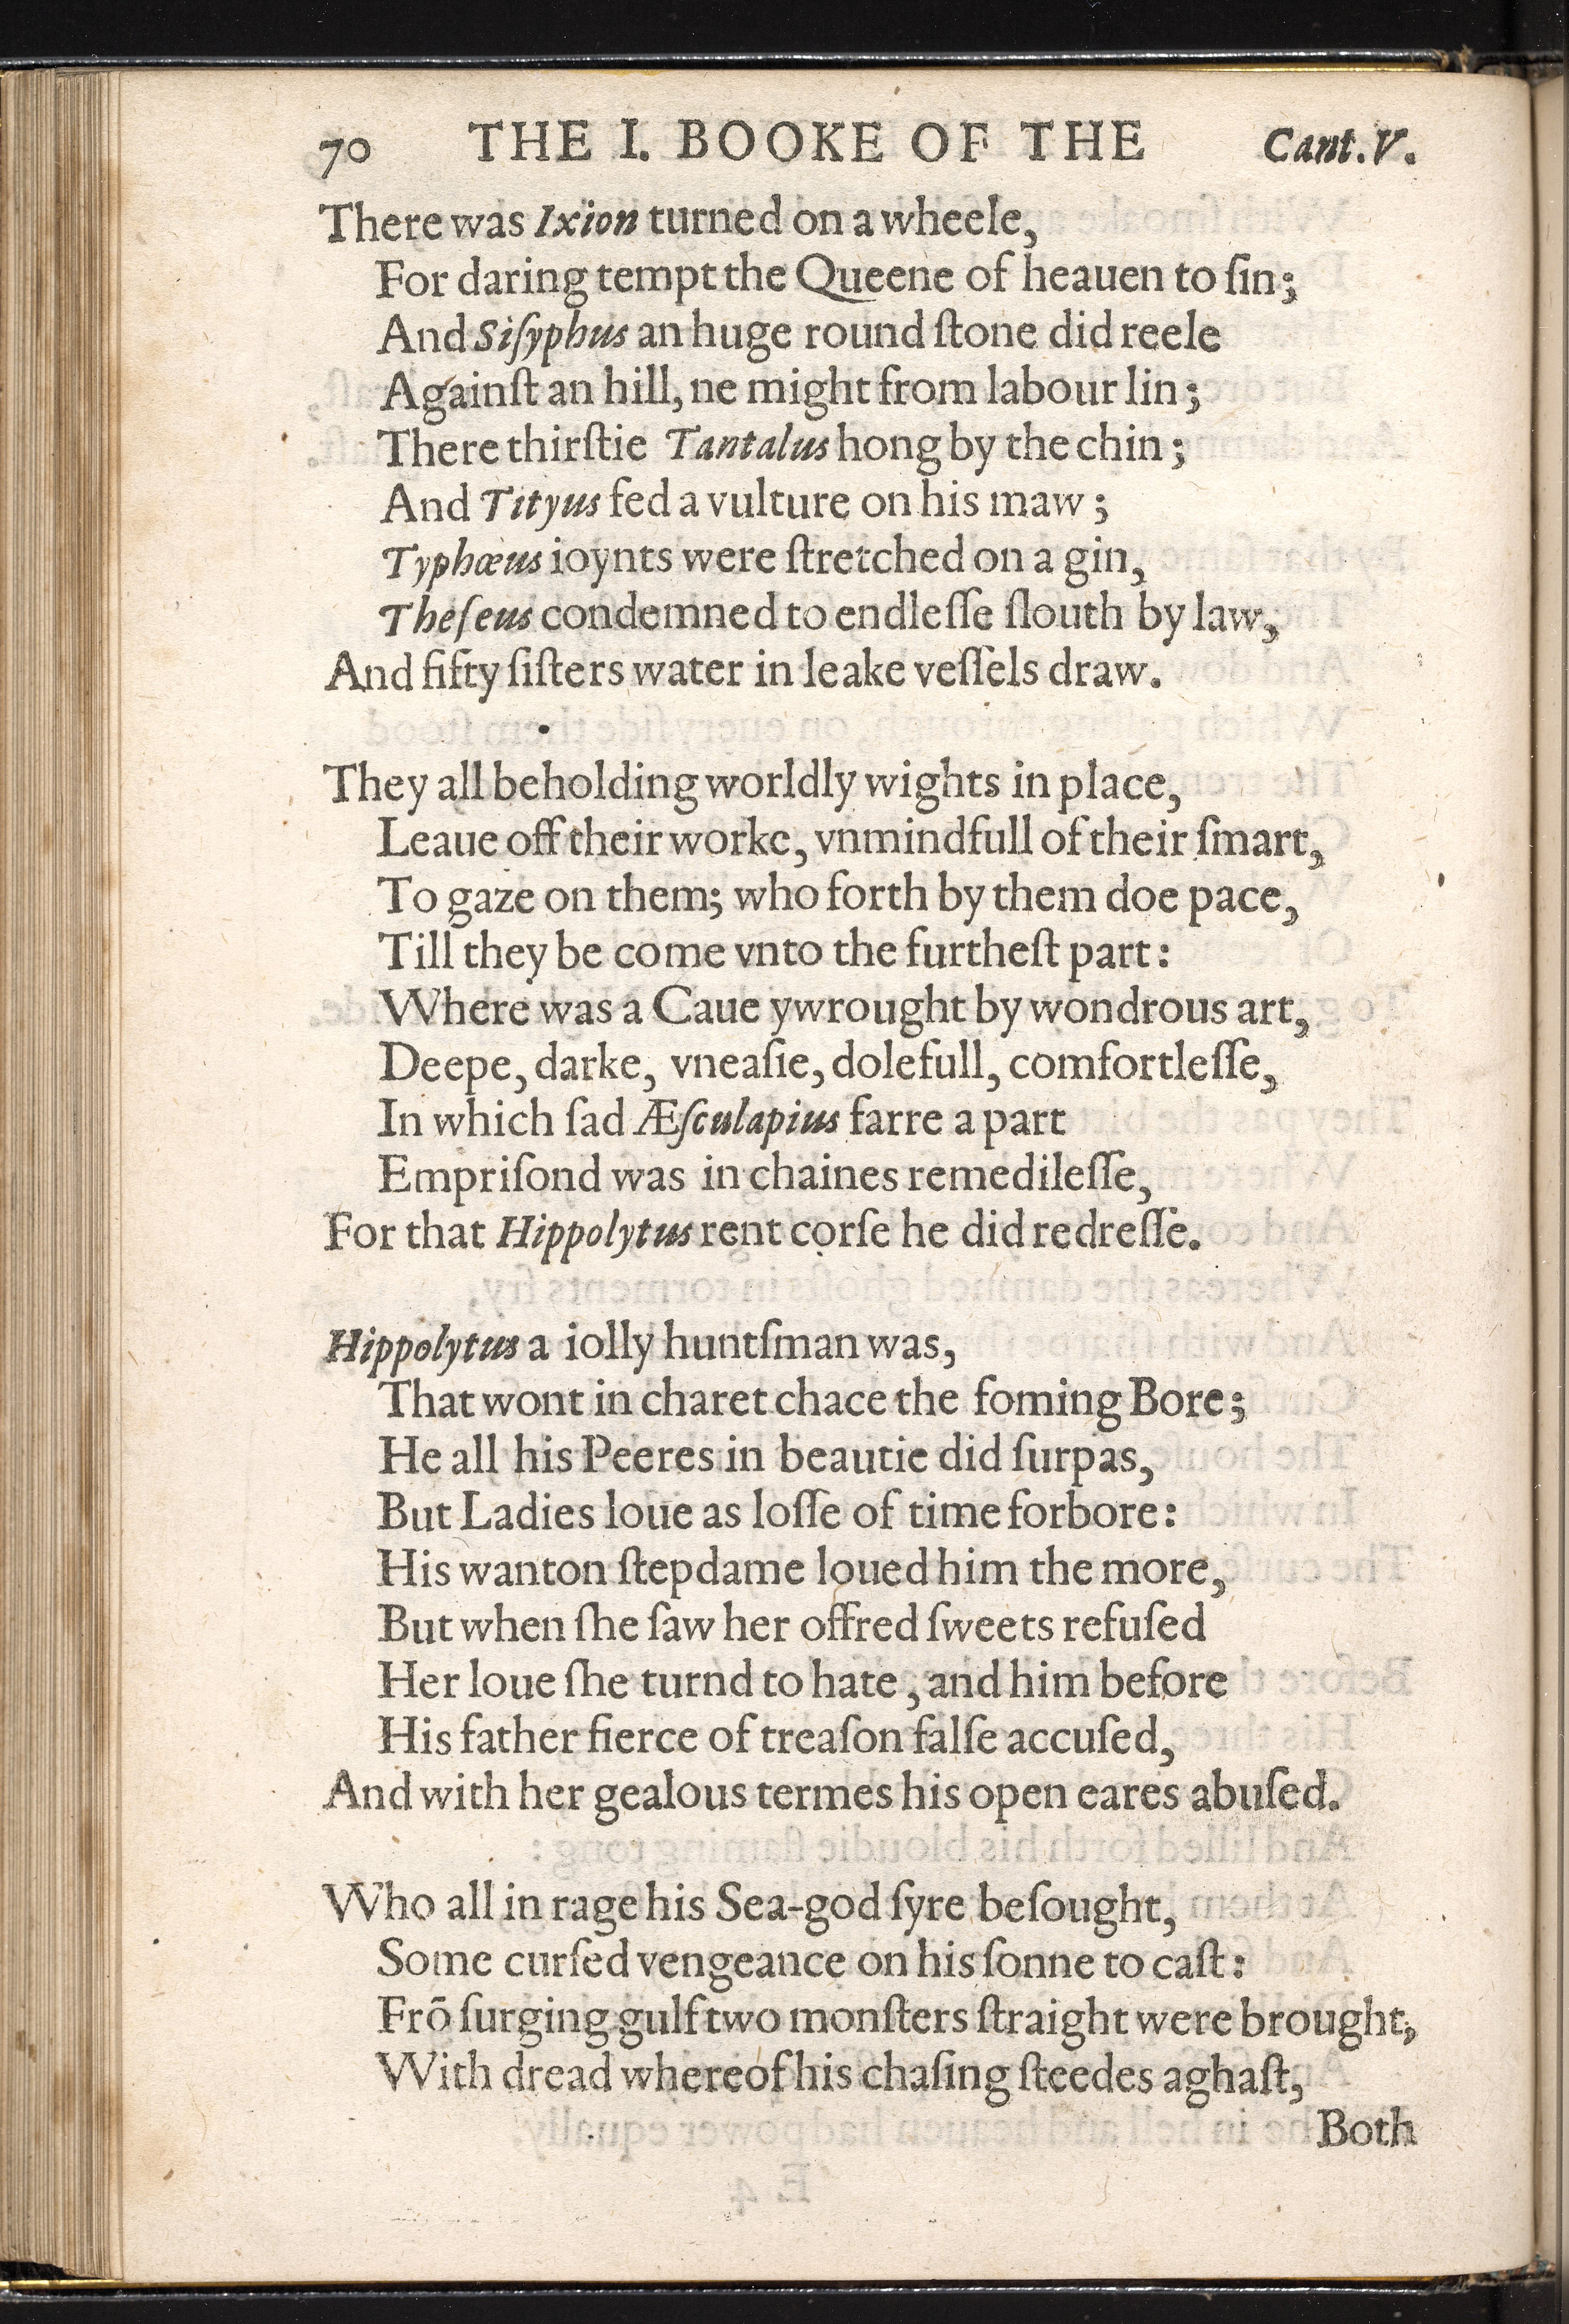 70 THE I. BOOKE OF THE Cant.V.
There was Ixion turned on a wheele,
For daring tempt the Queene of heauen to ſin;
And Siſyphus an huge round ſtone did reele
Againſt an hill, ne might from labour lin;
There thirſtie Tantalus hong by the chin;
And Tityus fed a vulture on his maw;
Typhœus ioynts were ſtretched on a gin,
Theſeus condemned to endleſſe ſlouth by law,
And fifty ſiſters water in leake veſſels draw.
They all beholding worldly wights in place,
Leaue off their worke, vnmindfull of their ſmart,
To gaze on them; who forth by them doe pace,
Till they be come vnto the furtheſt part:
Where was a Caue ywrought by wondrous art,
Deepe, darke, vneaſie, dolefull, comfortleſſe,
In which ſad Æſculapius farre a part
Empriſond was in chaines remedileſſe,
For that Hippolytus rent corſe he did redreſſe.
Hippolytus a iolly huntſman was,
That wont in charet chace the foming Bore;
He all his Peeres in beautie did ſurpas,
But Ladies loue as loſſe of time forbore:
His wanton ſtepdame loued him the more,
But when ſhe ſaw her offred ſweets refuſed
Her loue ſhe turnd to hate, and him before
His father fierce of treaſon falſe accuſed,
And with her gealous termes his open eares abuſed.
Who all in rage his Sea-god ſyre beſought,
Some curſed vengeance on his ſonne to caſt:
Frō ſurging gulf two monſters ſtraight were brought,
With dread whereof his chaſing ſteedes aghaſt,
Both